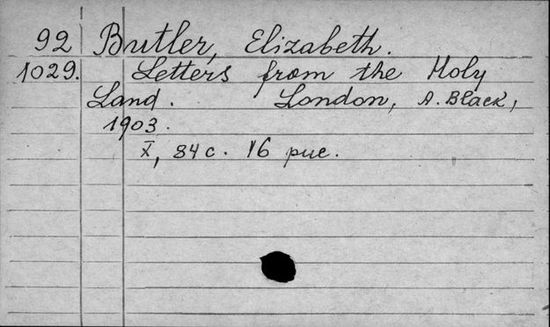 92 Butler, Elizabeth.
1029. Letters from the Holy
Land. London, A. Black,
1903.
X, 84 c. 16 рис.